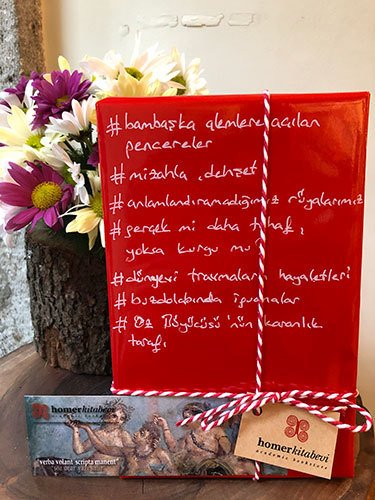 #bambaşka alemlere açılan
pencereler
#mizahla, dehşet
#anlamlandıramadığımız rüyalarımız
#gerçek mi daha tuhaf,
yoksa kurgu mu?
#dünyevi travmaların hayaletleri
#buzdolabında iguanalar
#Oz Büyücüsü'nün karanlık
tarafı
homerkitabevi
"verba volant scripta manent"
homerkitabevi
academic bookstore